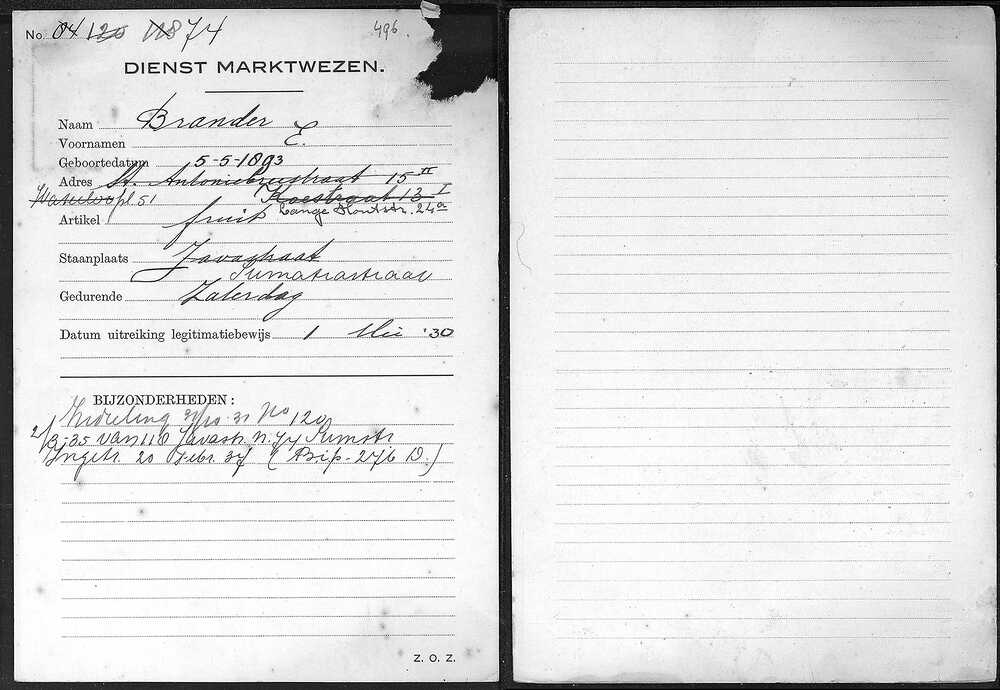 No. 04 120 118 74 496.
DIENST MARKTWEZEN.
Naam Brander
Voornamen E.
Geboortedatum 5-5-1893
Adres St. Antoniebreestraat 15 II
Waterloopl 51 Koestraat 13 I
Lange Houtstr. 24a
Artikel fruit
Staanplaats Javastraat
Sumatrastraat
Gedurende Zaterdag
Datum uitreiking legitimatiebewijs 1 Mei '30
BIJZONDERHEDEN:
Indeeling 31/10-31 No 120
2/3-35 van 118 Javastr. n. 74 Sumstr
Ingetr. 20 Febr. 37 (Besch. 276 D.)
Z. O. Z.